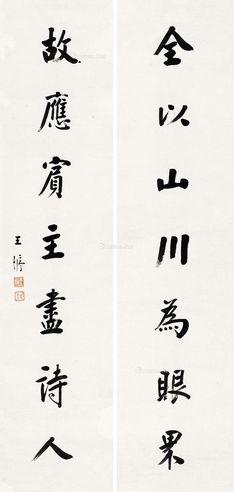 全以山川為眼界
故應賓主盡詩人